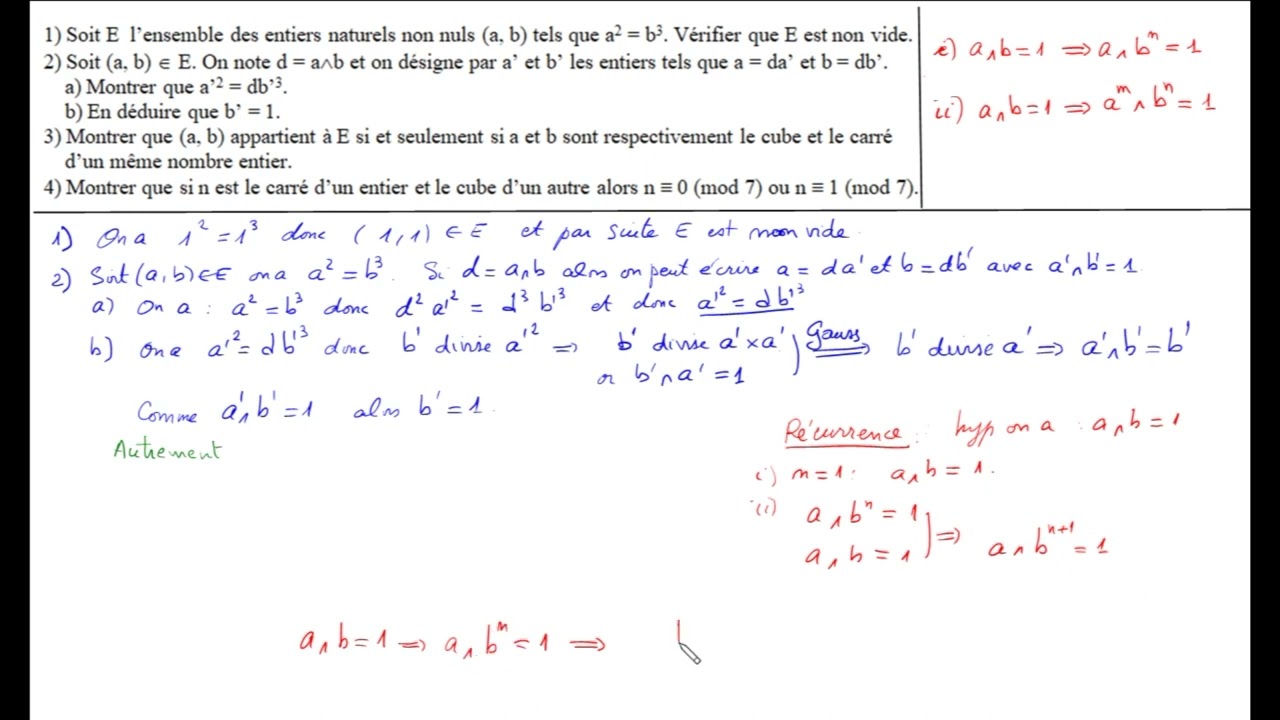 1) Soit E l'ensemble des entiers naturels non nuls (a, b) tels que a² = b³. Vérifier que E est non vide.
2) Soit (a, b) ∈ E. On note d = a∧b et on désigne par a' et b' les entiers tels que a = da' et b = db'.
a) Montrer que a'² = db'³.
b) En déduire que b' = 1.
3) Montrer que (a, b) appartient à E si et seulement si a et b sont respectivement le cube et le carré
d'un même nombre entier.
4) Montrer que si n est le carré d'un entier et le cube d'un autre alors n ≡ 0 (mod 7) ou n ≡ 1 (mod 7).
i) a∧b=1 ⟹ a∧bⁿ=1
ii) a∧b=1 ⟹ aᵐ∧bⁿ=1
1) On a 1²=1³ donc (1,1) ∈ E et par suite E est non vide.
2) Soit (a,b)∈E on a a²=b³. Si d=a∧b alors on peut écrire a=da' et b=db' avec a'∧b'=1
a) On a : a²=b³ donc d²a'² = d³b'³ et donc a'²=db'³
b) On a a'²=db'³ donc b' divise a'² ⟹ b' divise a'×a' ) Gauss ⟹ b' divise a' ⟹ a'∧b'=b'
or b'∧a'=1
Comme a'∧b'=1 alors b'=1.
Autrement
Récurrence : hyp on a : a∧b=1
i) n=1: a∧b=1.
ii) a∧bⁿ=1
a∧b=1 } ⟹ a∧bⁿ⁺¹=1
a∧b=1 ⟹ a∧bⁿ=1 ⟹